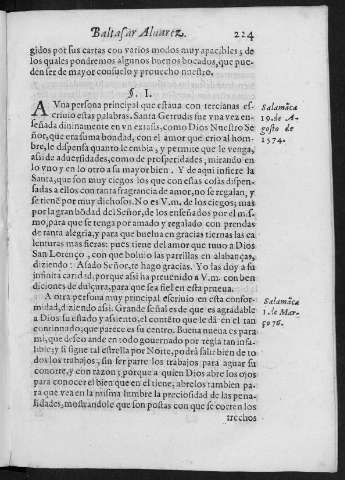 Baltasar Aluarez. 224
gidos por sus cartas con varios modos muy apacibles; de
los quales pondremos algunos buenos bocados, que pue-
den ser de mayor consuelo y prouecho nuestro.
§. I.
A Vna persona principal que estaua con tercianas es-
criuio estas palabras. Santa Gertrudis fue vna vez en-
señada diuinamente en vn extasis, como Dios Nuestro Se-
ñor, que es suma bondad, con el amor que crio al hombre,
le dispensa quanto le embia; y permite que le venga,
assi de aduersidades, como de prosperidades, mirando en
lo vno y en lo otro a su mayor bien. Y de aqui infiere la
Santa, que son muy ciegos los que con estas cosas dispen-
sadas a ellos con tanta fragrancia de amor, no se regalan, y
se tienē por muy dichosos. No es V.m. de los ciegos; mas
por la gran bōdad del Señor, de los enseñados por el mis-
mo, para que se tenga por amado y regalado con prendas
de tanta alegria, y para que buelua en gracias tiernas las ca-
lenturas mas fieras: pues tiene del amor que tuuo a Dios
San Lorenço, con que boluio las parrillas en alabanças,
diziendo: Asado Señor, te hago gracias. Yo las doy a su
infinita caridad, porque assi ha preuenido a V.m. con ben
diciones de dulçura, para que sea fiel en esta prueua.
A otra persona muy principal escriuio en esta confor-
midad, diziendo assi. Grande señal es de que es agradable
a Dios su estado y assiento, el contēto que le dà en el tan
continuado; que parece es su centro. Buena nueua es para
mi, que desseo ande en todo gouernado por regla tan infa-
lible; y si sigue tal estrella por Norte, podrà salir bien de to
dos los trabajos; sin ser parte los trabajos para aguar su
conorte, y con razon; porque a quien Dios abre los ojos
para conocer el bien que en el tiene, abrelos tambien pa
ra que vea en la misma lumbre la preciosidad de las pena-
lidades, mostrandole que son postas con que se corren los
trechos
Salamāca
19. de A-
gosto de
1574.
Salamāca
1. de Mar
ço 76.